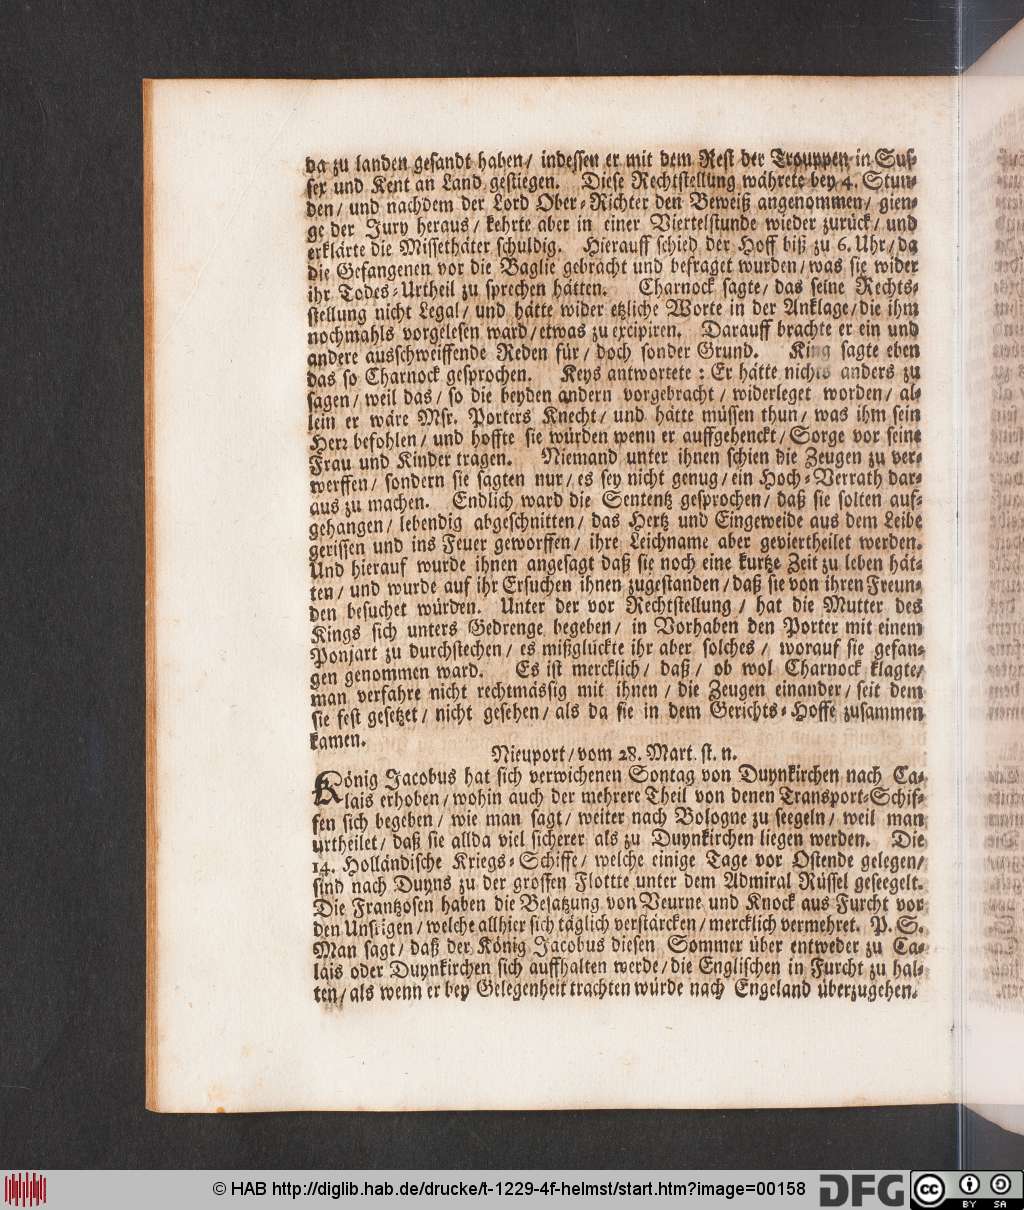 da zu landen gesandt haben/ indessen er mit dem Rest der Trouppen in Sus-
sex und Kent an Land gestiegen. Diese Rechtstellung währete bey 4. Stun-
den/ und nachdem der Lord Ober-Richter den Beweiß angenommen/ gien-
ge der Jury heraus/ kehrte aber in einer Viertelstunde wieder zurück/ und
erklärte die Missethäter schuldig. Hierauff schied der Hoff biß zu 6. Uhr/ da
die Gefangenen vor die Baglie gebracht und befraget wurden/ was sie wider
ihr Todes-Urtheil zu sprechen hätten. Charnock sagte/ das seine Rechts-
stellung nicht Legal/ und hätte wider etzliche Worte in der Anklage/ die ihm
nochmahls vorgelesen ward/ etwas zu excipiren. Darauff brachte er ein und
andere ausschweiffende Reden für/ doch sonder Grund. King sagte eben
das so Charnock gesprochen. Keys antwortete: Er hätte nichts anders zu
sagen/ weil das/ so die beyden andern vorgebracht/ widerleget worden/ al-
lein er wäre Msr. Porters Knecht/ und hätte müssen thun/ was ihm sein
Herr befohlen/ und hoffte sie würden wenn er auffgehenckt/ Sorge vor seine
Frau und Kinder tragen. Niemand unter ihnen schien die Zeugen zu ver-
werffen/ sondern sie sagten nur/ es sey nicht genug/ ein Hoch-Verrath dar-
aus zu machen. Endlich ward die Sententz gesprochen/ daß sie solten auf-
gehangen/ lebendig abgeschnitten/ das Hertz und Eingeweide aus dem Leibe
gerissen und ins Feuer geworffen/ ihre Leichname aber geviertheilet werden.
Und hierauf wurde ihnen angesagt daß sie noch eine kurtze Zeit zu leben hät-
ten/ und wurde auf ihr Ersuchen ihnen zugestanden/ daß sie von ihren Freun-
den besuchet würden. Unter der vor Rechtstellung/ hat die Mutter des
Kings sich unters Gedrenge begeben/ in Vorhaben den Porter mit einem
Ponjart zu durchstechen/ es mißglückte ihr aber solches/ worauf sie gefan-
gen genommen ward. Es ist mercklich/ daß/ ob wol Charnock klagte/
man verfahre nicht rechtmässig mit ihnen/ die Zeugen einander/ seit dem
sie fest gesetzet/ nicht gesehen/ als da sie in dem Gerichts-Hoffe zusammen
kamen.
Nieuport/ vom 28. Mart. st. n.
König Jacobus hat sich verwichenen Sontag von Duynkirchen nach Ca-
lais erhoben/ wohin auch der mehrere Theil von denen Transport-Schif-
fen sich begeben/ wie man sagt/ weiter nach Bologne zu seegeln/ weil man
urtheilet/ daß sie allda viel sicherer als zu Duynkirchen liegen werden. Die
14. Holländische Kriegs-Schiffe/ welche einige Tage vor Ostende gelegen/
sind nach Duyns zu der grossen Flottte unter dem Admiral Rüssel geseegelt.
Die Frantzosen haben die Besatzung von Veurne und Knock aus Furcht vor
den Unsrigen/ welche allhier sich täglich verstärcken/ mercklich vermehret. P. S.
Man sagt/ daß der König Jacobus diesen Sommer über entweder zu Ca-
lais oder Duynkirchen sich auffhalten werde/ die Englischen in Furcht zu hal-
ten/ als wenn er bey Gelegenheit trachten würde nach Engeland überzugehen.
© HAB http://diglib.hab.de/drucke/t-1229-4f-helmst/start.htm?image=00158
DFG
cc BY SA